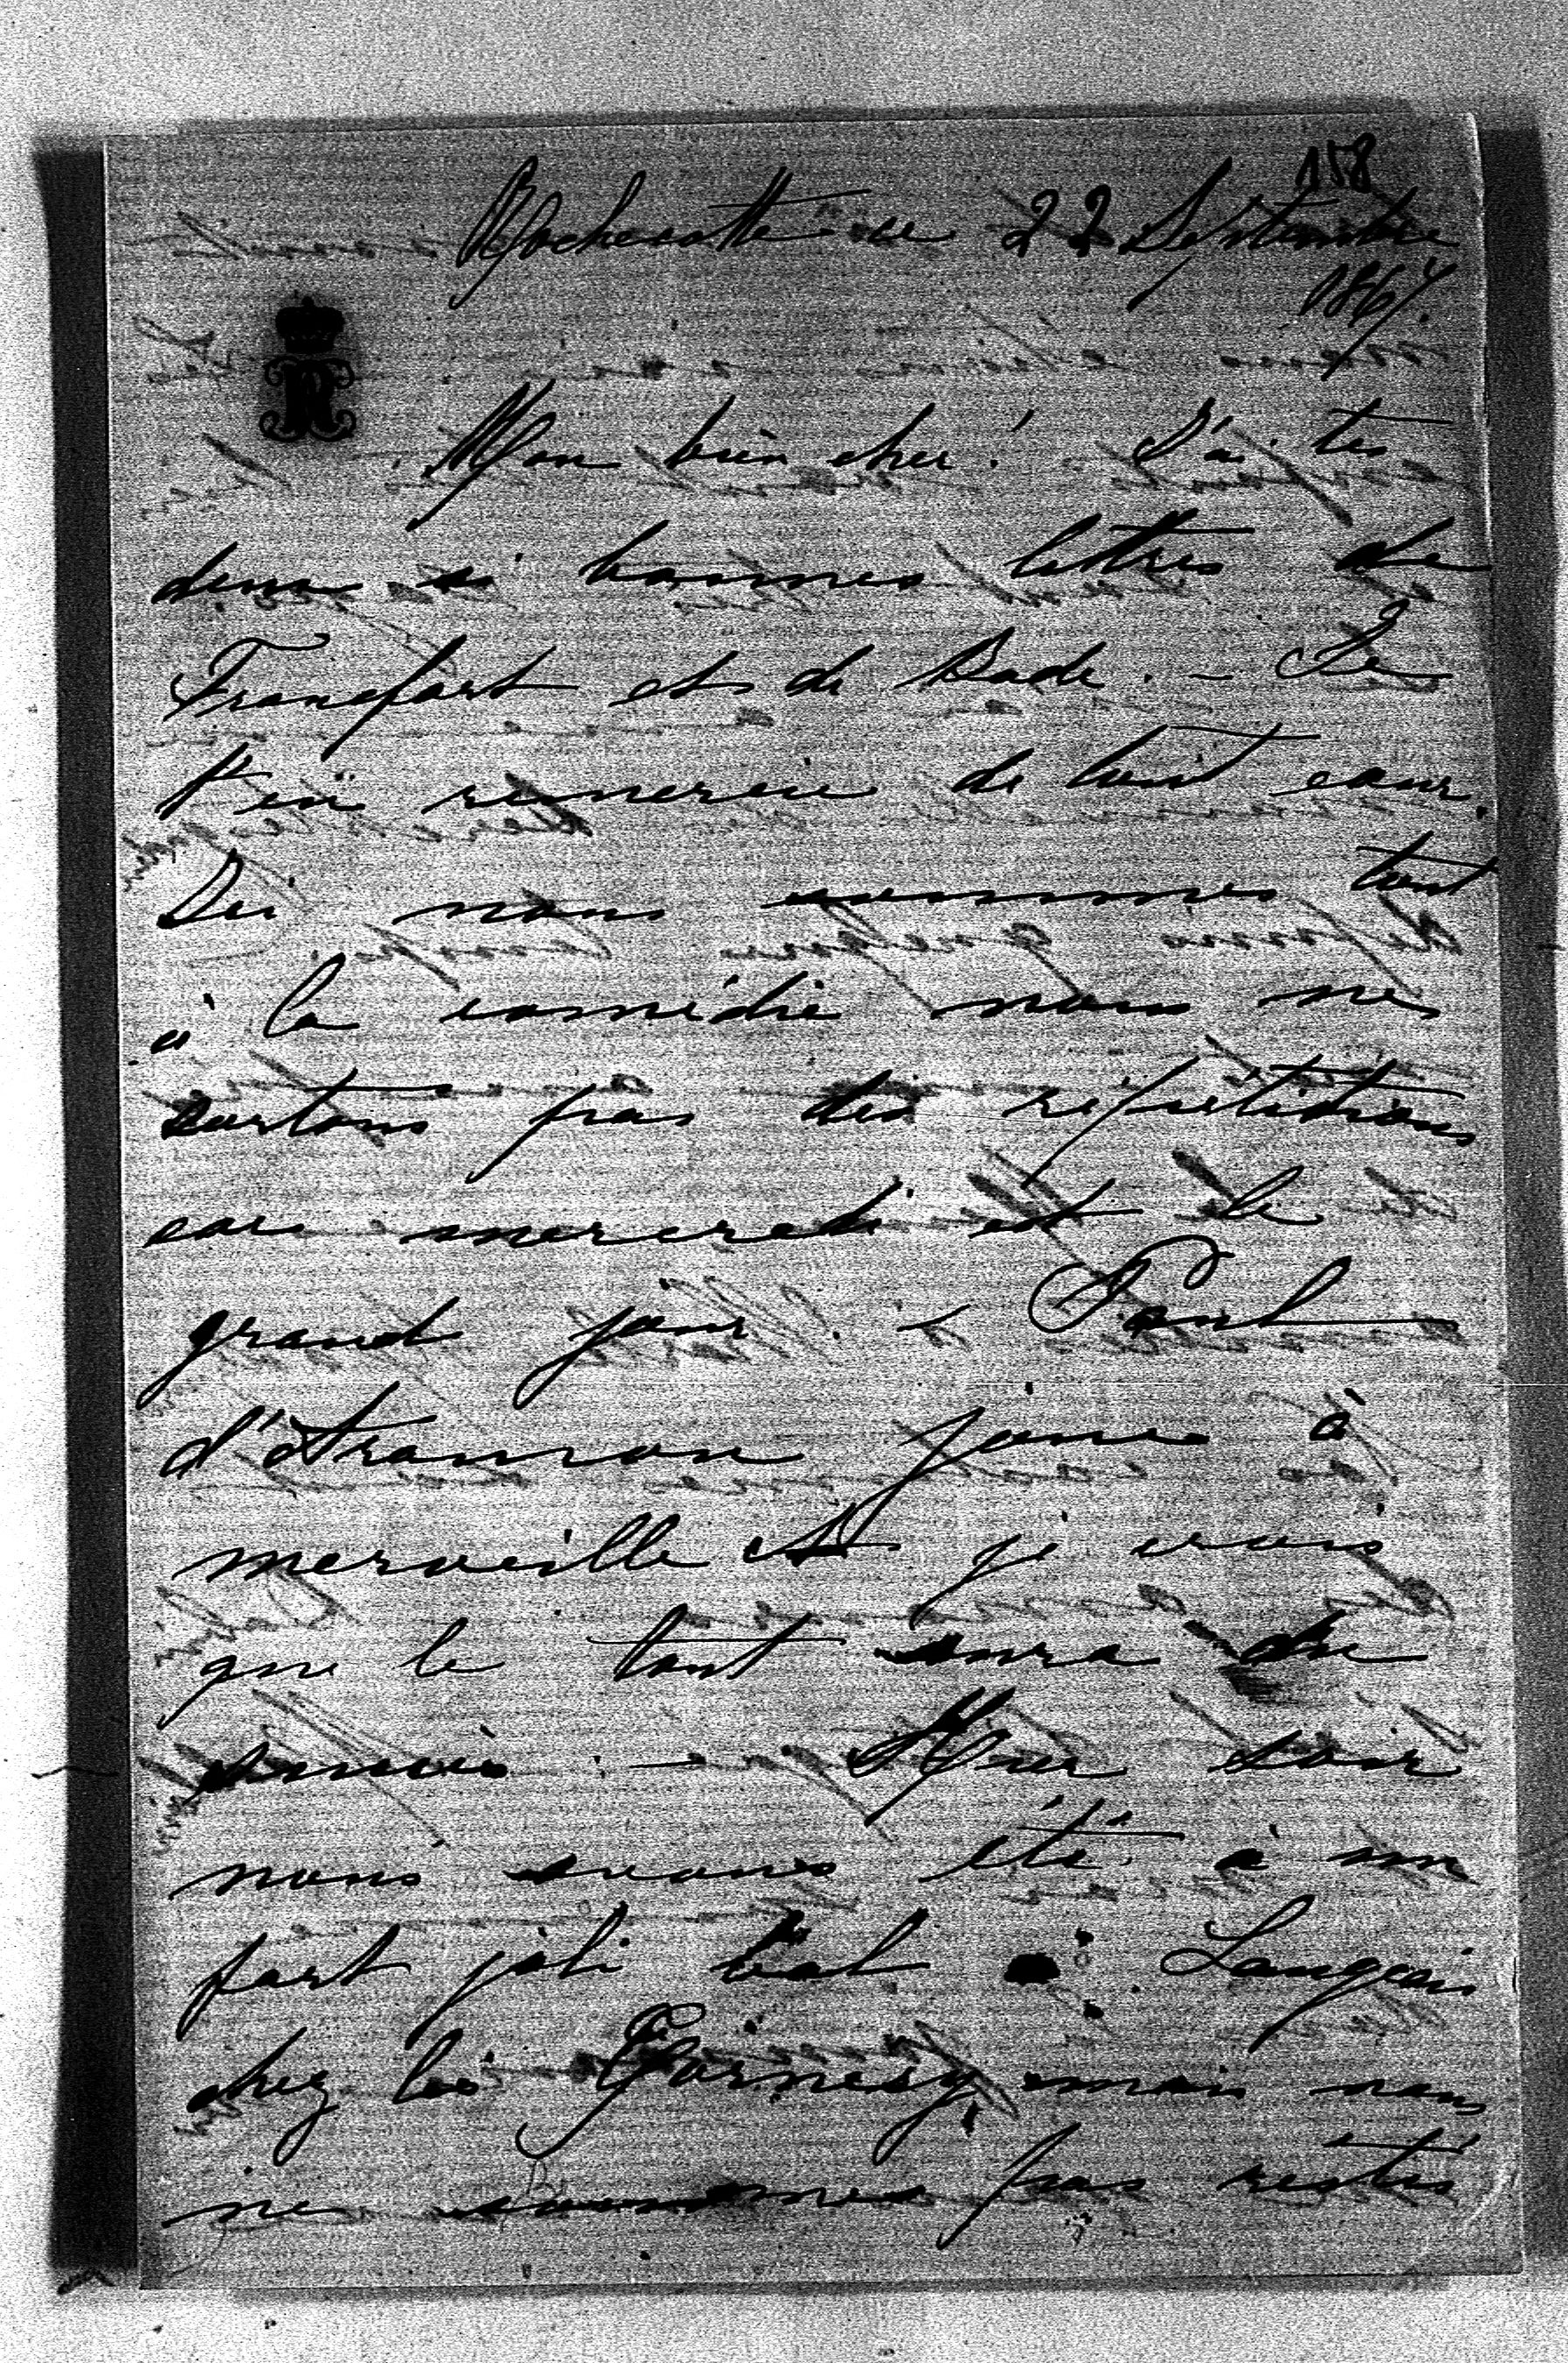 158
Rochecotte ce 22 Septembre
1867.
R
Mon bien cher! J'ai tes
deux si bonnes lettres de
Francfort et de Bade. – Je
t'en remercie de tout cœur.
Ici nous sommes tout
à la comédie nous ne
sortons pas des répétitions
car mercredi est le
grand jour. – Paul
d'Aramon joue à
merveille et je crois
que le tout aura du
succès. – Hier soir
nous avons été à un
fort joli bal à Langeais
chez les mais nous
ne sommes pas restés